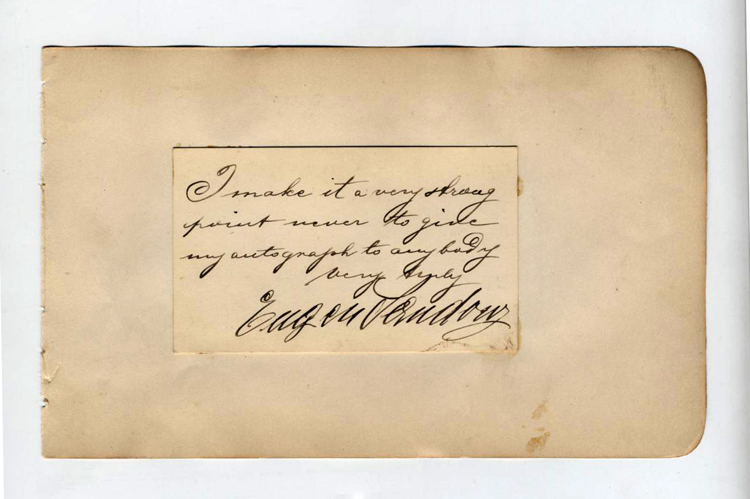 I make it a very strong
point never to give
my autograph to anybody
very truly
Eugen Sandow